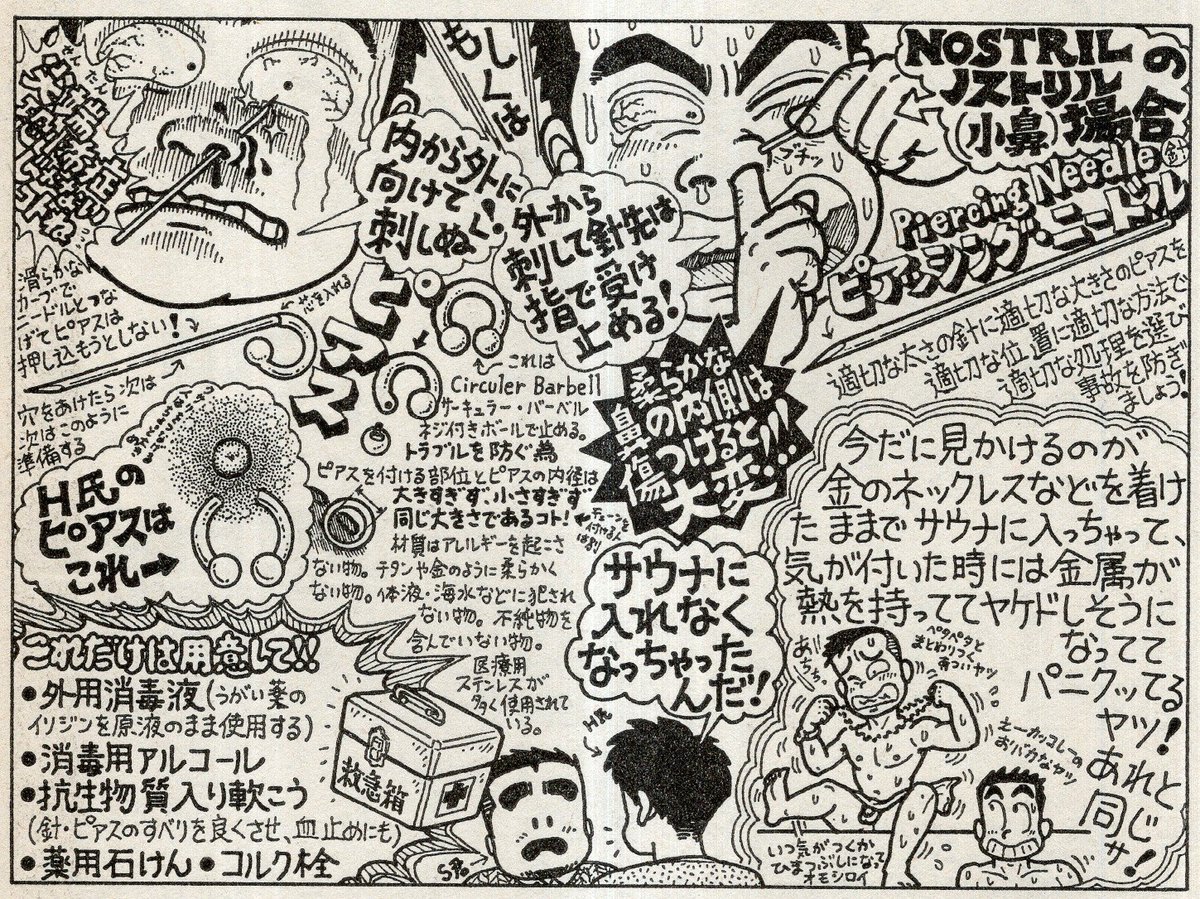 NOSTRILの
ノストリル
(小鼻)場合
Piercing Needle(針)
ピアッシング・ニードル
適切な太さの針に適切な大きさのピアスを
適切な位置に適切な方法で
適切な処理を選び
事故を防ぎ
ましょう!
もしくは
外から
刺して針先は
指で受け
止める!
内から外に
向けて
刺しぬく!
柔らかな
鼻の内側は
傷つけると
大変!!
滑らかな
カーブで
ニードルとつな
げてピアスは
押し込もうとしない!
芯を入れる
穴をあけたら次は
次はこのように
準備する
ピアス
これは
Circuler Barbell
サーキュラー・バーベル
ネジ付きボールで止める。
トラブルを防ぐ為
ピアスを付ける部位とピアスの内径は
大きすぎず、小さすぎず
同じ大きさであるコト!
チェーンを
付ける人
は別
材質はアレルギーを起こさ
ない物。チタンや金のように柔らかく
ない物。体液・海水などに犯され
ない物。不純物を
含んでいない物。
医療用
ステンレスが
多く使用されて
いる。
H氏の
ピアスは
これ→
これだけは用意して!!
●外用消毒液(うがい薬の
イソジンを原液のまま使用する)
●消毒用アルコール
●抗生物質入り軟こう
(針・ピアスのすべりを良くさせ、血止めにも)
●薬用石けん●コルク栓
救急箱
サウナに
入れなく
なっちゃった
んだ!
H氏
今だに見かけるのが
金のネックレスなどを着け
たままでサウナに入っちゃって、
気が付いた時には金属が
熱を持っててヤケドしそうに
なってて
パニクッてる
ヤツ!
あれと
同じサ!
ペタペタと
まとわりつく
あついヤツ
モーカッコレーの
おバカなヤツ
いつ気がつくか
ひまつぶしになって
オモシロイ